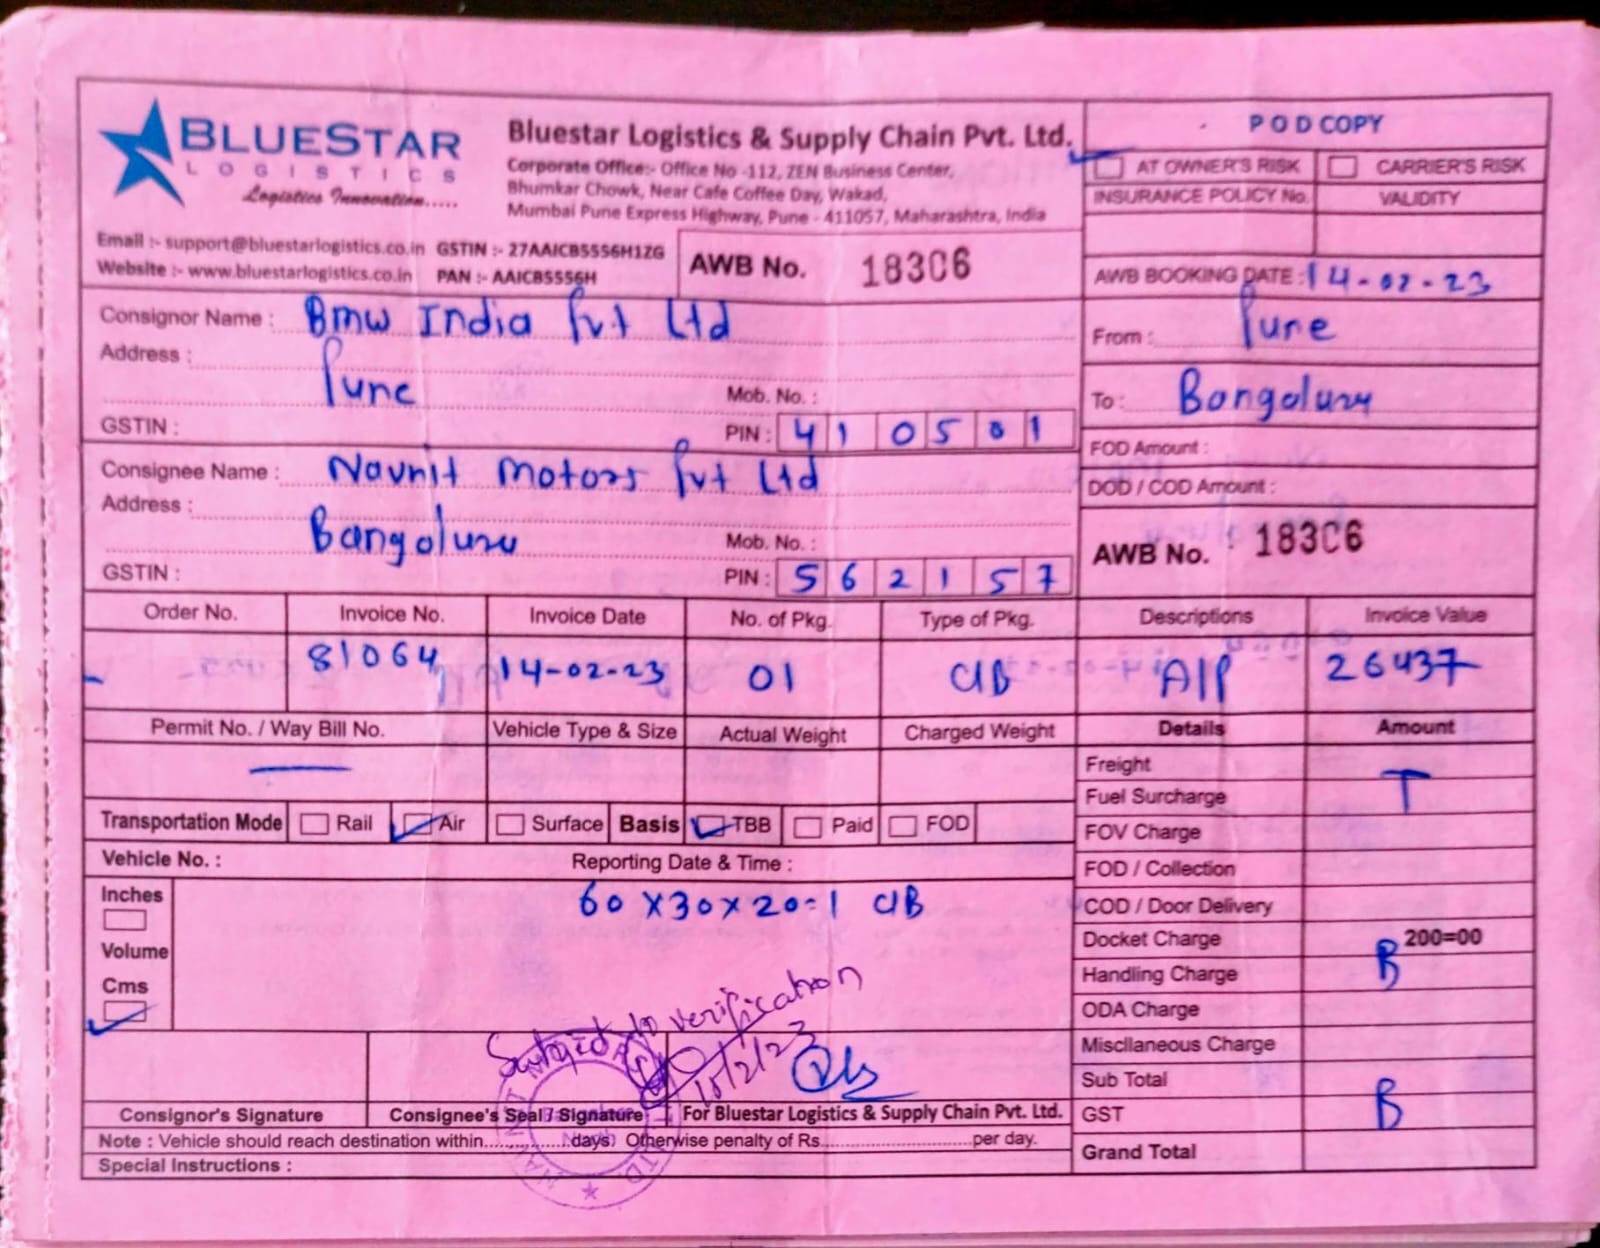 BLUESTAR
LOGISTICS
Logistics Innovation.....
Bluestar Logistics & Supply Chain Pvt. Ltd.
Corporate Office:- Office No -112, ZEN Business Center,
Bhumkar Chowk, Near Cafe Coffee Day, Wakad,
Mumbai Pune Express Highway, Pune - 411057, Maharashtra, India
Email :- support@bluestarlogistics.co.in GSTIN :- 27AAICB5556H1ZG
Website :- www.bluestarlogistics.co.in PAN :- AAICB5556H
AWB No. 18306
POD COPY
AT OWNER'S RISK CARRIER'S RISK
INSURANCE POLICY No. VALIDITY
AWB BOOKING DATE : 14-02-23
From : Pune
To : Bangoluru
FOD Amount :
DOD / COD Amount :
AWB No. 18306
Consignor Name : Bmw India Pvt Ltd
Address :
Pune
Mob. No. :
GSTIN : PIN : 410501
Consignee Name : Navnit Motors Pvt Ltd
Address :
Bangoluru
Mob. No. :
GSTIN : PIN : 562157
Order No. Invoice No. Invoice Date No. of Pkg. Type of Pkg. Descriptions Invoice Value
- 81064 14-02-23 01 C/B A/P 26437
Permit No. / Way Bill No. Vehicle Type & Size Actual Weight Charged Weight Details Amount
Freight
Fuel Surcharge T
Transportation Mode Rail Air Surface Basis TBB Paid FOD
FOV Charge
Vehicle No. : Reporting Date & Time :
FOD / Collection
Inches
60 x 30 x 20 = 1 C/B
COD / Door Delivery
Volume
Docket Charge 200=00
Cms
Handling Charge B
ODA Charge
Miscllaneous Charge
Subject to verification
15/2/23
Sub Total
Consignor's Signature Consignee's Seal / Signature For Bluestar Logistics & Supply Chain Pvt. Ltd.
GST B
Note : Vehicle should reach destination within..............(days) Otherwise penalty of Rs.........................per day.
Grand Total
Special Instructions :